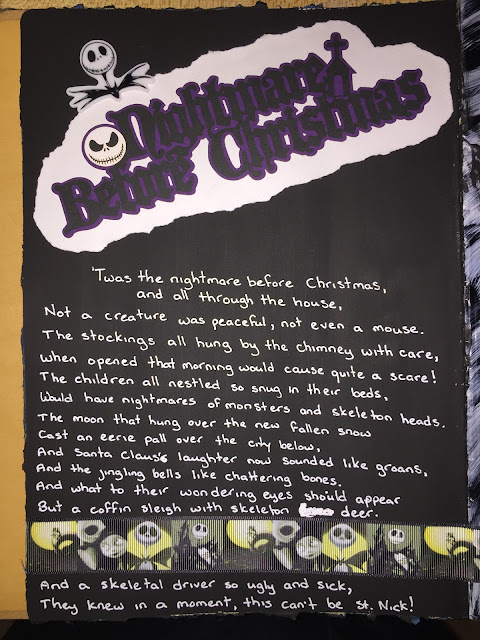 Nightmare
Before Christmas
'Twas the nightmare before Christmas,
and all through the house,
Not a creature was peaceful, not even a mouse.
The stockings all hung by the chimney with care,
When opened that morning would cause quite a scare!
The children all nestled so snug in their beds,
Would have nightmares of monsters and skeleton heads.
The moon that hung over the new fallen snow
Cast an eerie pall over the city below,
And Santa Claus's laughter now sounded like groans,
And the jingling bells like chattering bones.
And what to their wondering eyes should appear
But a coffin sleigh with skeleton deer.
And a skeletal driver so ugly and sick,
They knew in a moment, this can't be St. Nick!